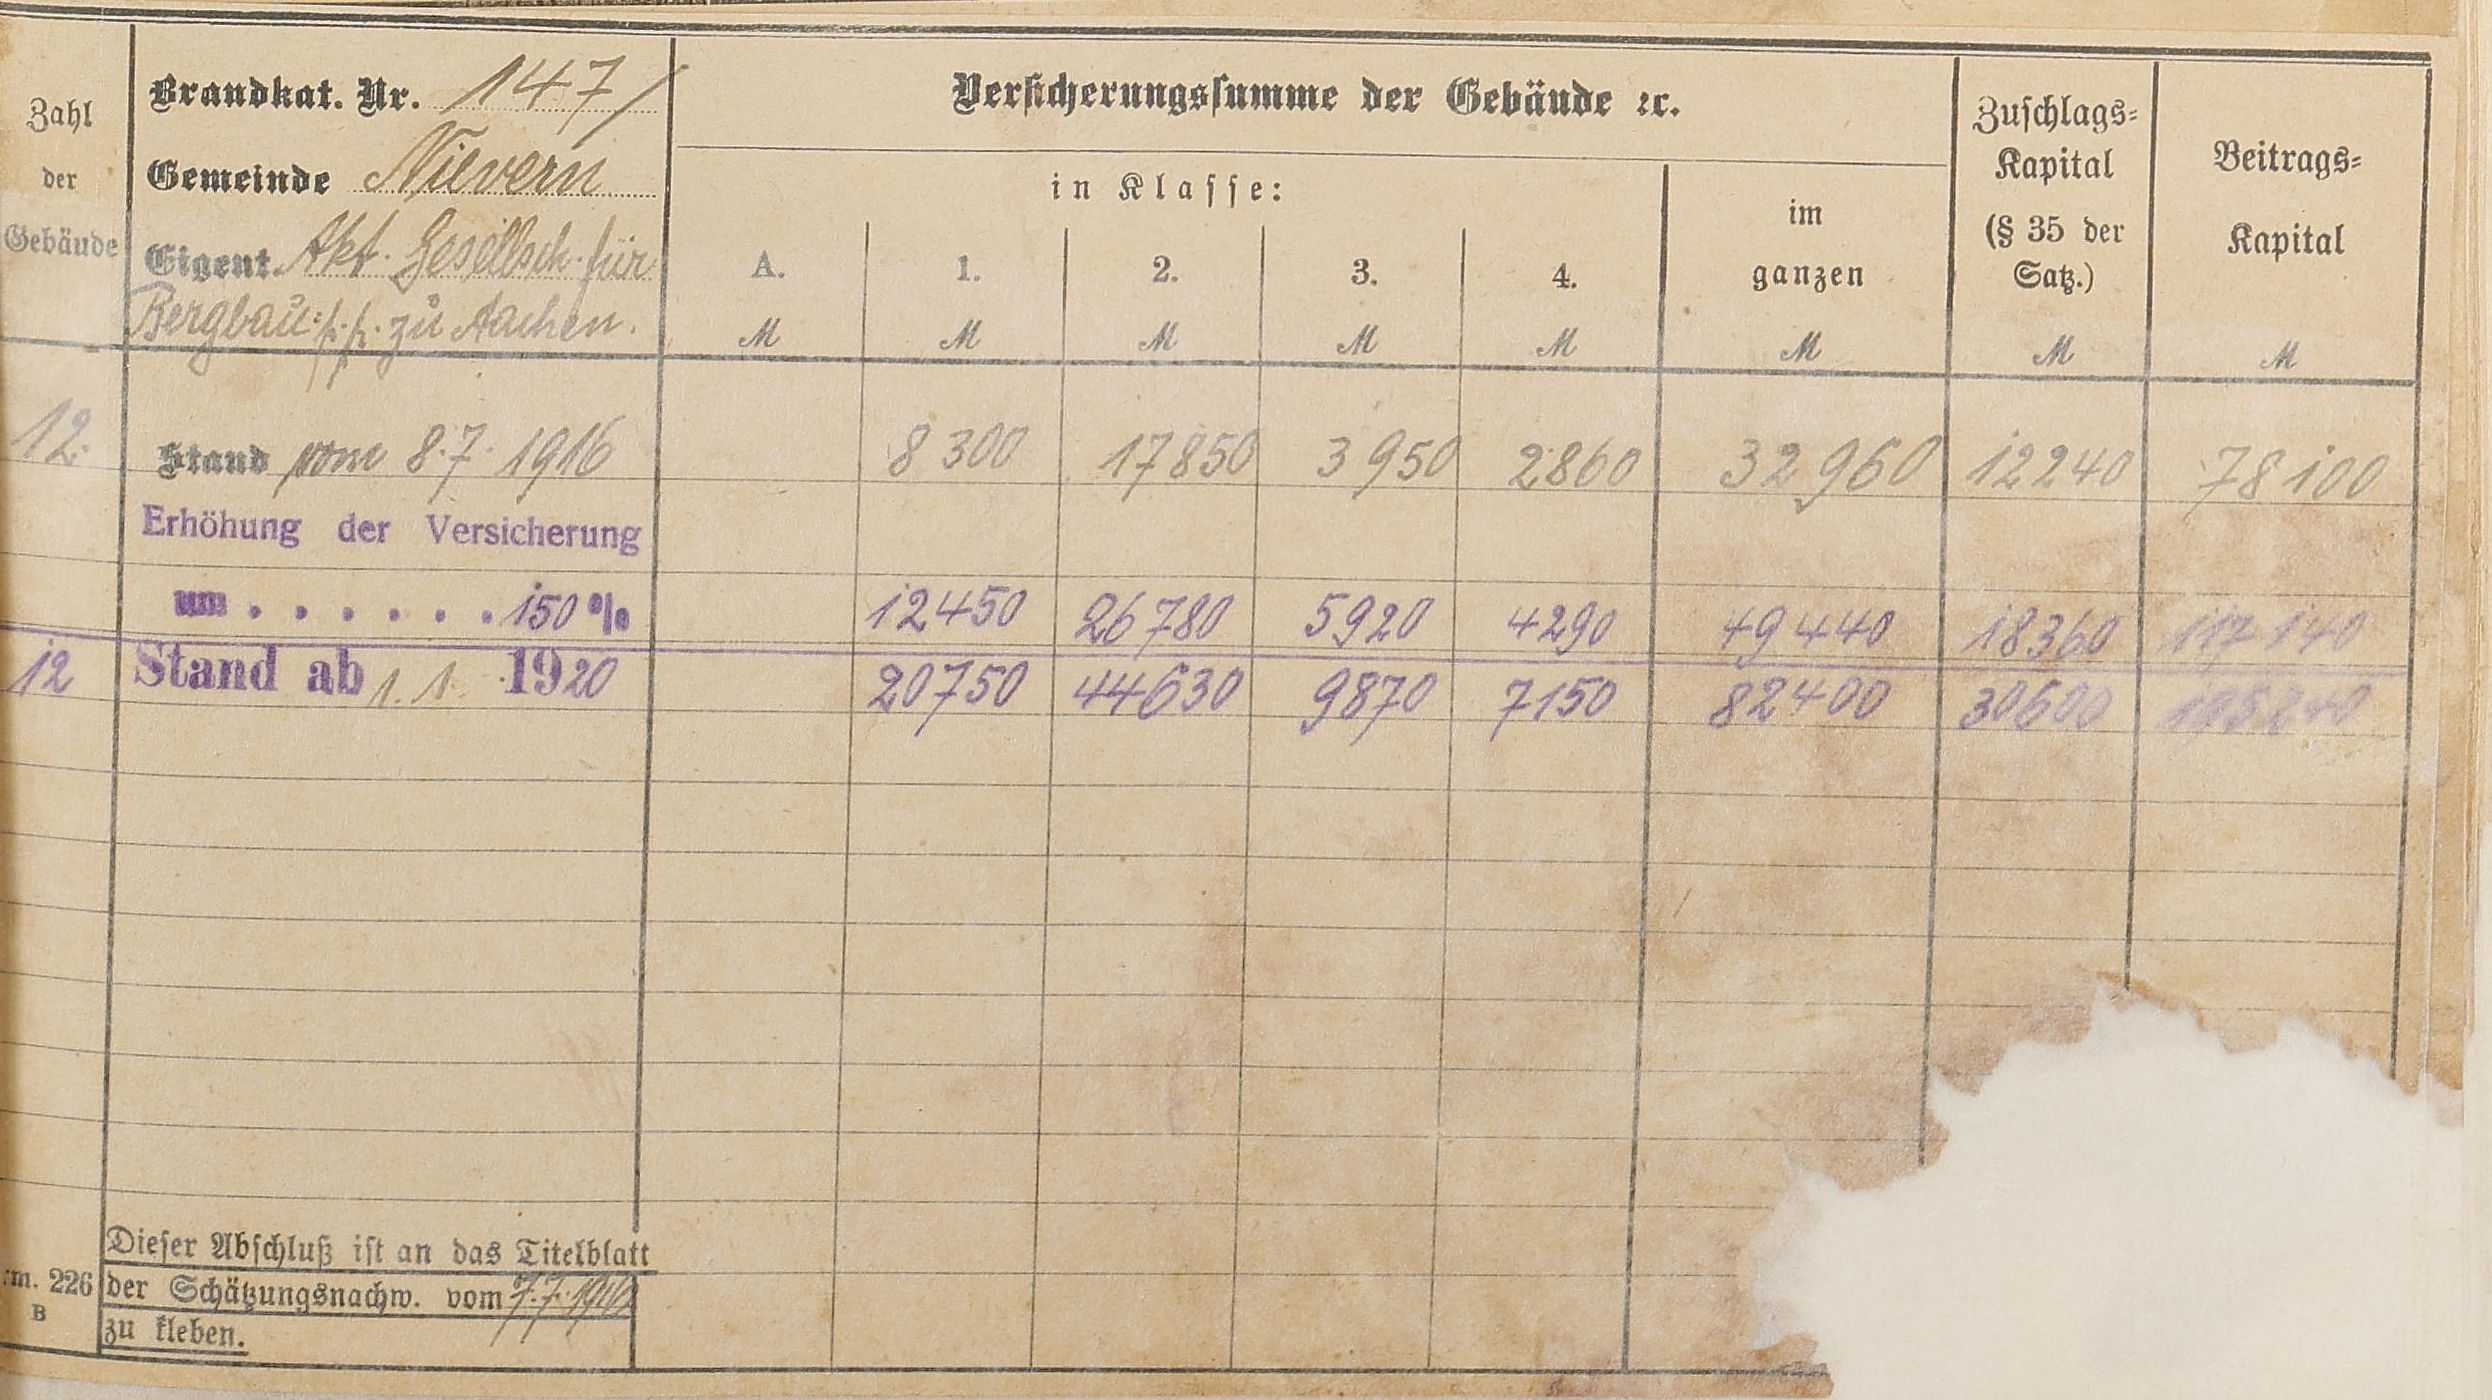 Zahl
der
Gebäude
Brandkat. Nr. 147/
Gemeinde Nievern
Eigent. Akt. Gesellsch. für
Bergbau p.p. zu Aachen.
Versicherungssumme der Gebäude ꝛc.
in Klasse:
A. 1. 2. 3. 4.
im
ganzen
Zuschlags-
Kapital
(§ 35 der
Satz.)
Beitrags-
Kapital
M M M M M M M M
12. Stand vom 8.7.1916 8 300 17 850 3 950 2860 32 960 12240 78 100
Erhöhung der Versicherung
um . . . . . . 150 % 12450 26780 5920 4290 49440 18360 117140
12 Stand ab 1.1. 1920 20750 44630 9870 7150 82400 30600 195240
Dieser Abschluß ist an das Titelblatt
m. 226 der Schätzungsnachw. vom 7.7.1916
B
zu kleben.